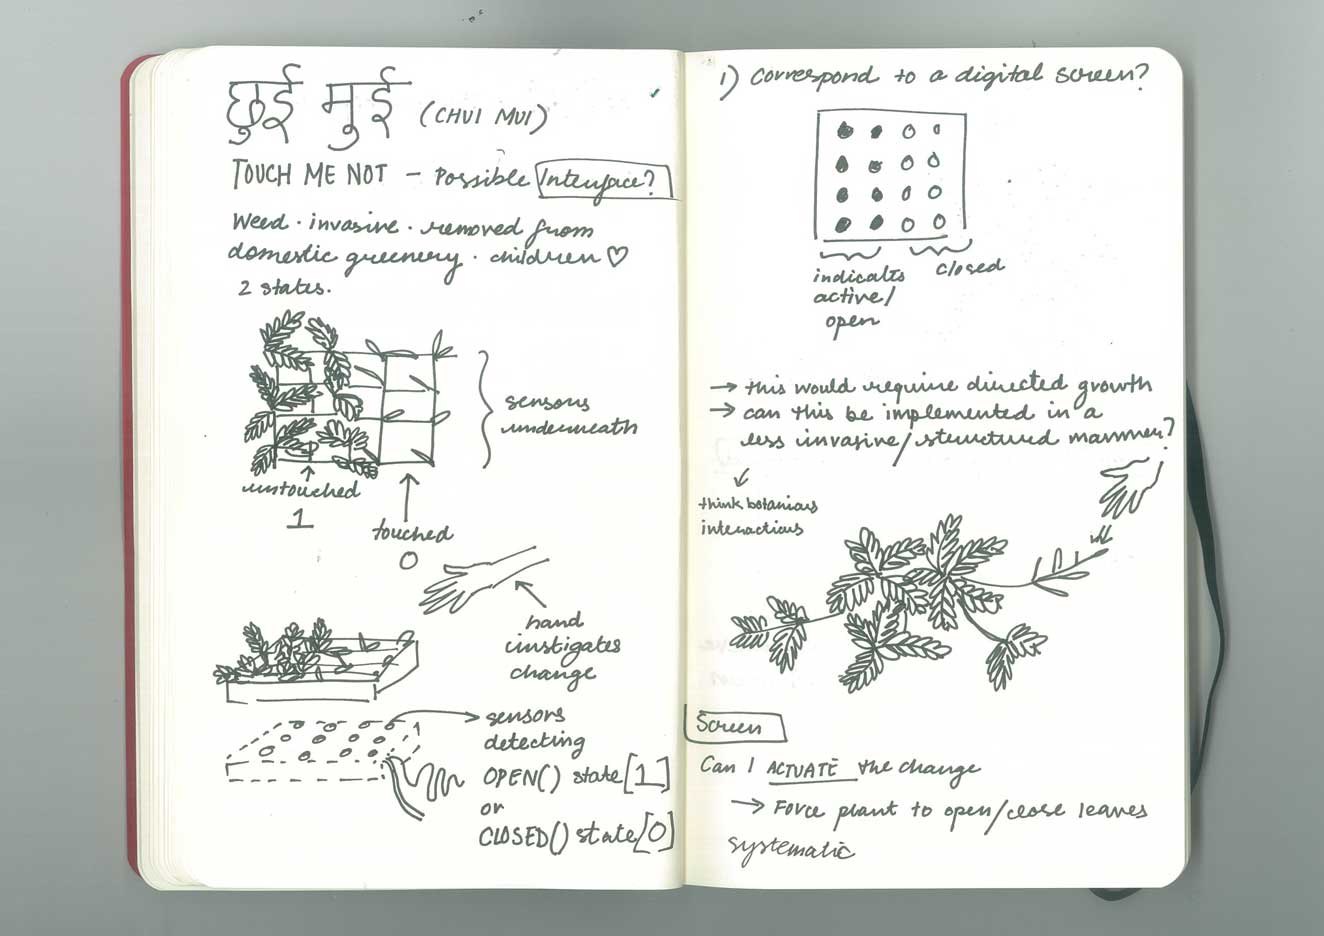 छुई मुई (CHUI MUI)
TOUCH ME NOT - Possible Interface?
Weed · invasive · removed from
domestic greenery · children ♡
2 states.
sensors
underneath
untouched
1
touched
0
hand
instigates
change
sensors
detecting
OPEN() state[1]
or
CLOSED() state[0]
1) Correspond to a digital screen?
indicates
active/
open
closed
→ this would require directed growth
→ can this be implemented in a
less invasive/structured manner?
think botanicus
interactions
Screen
Can I ACTUATE the change
→ Force plant to open/close leaves
systematic